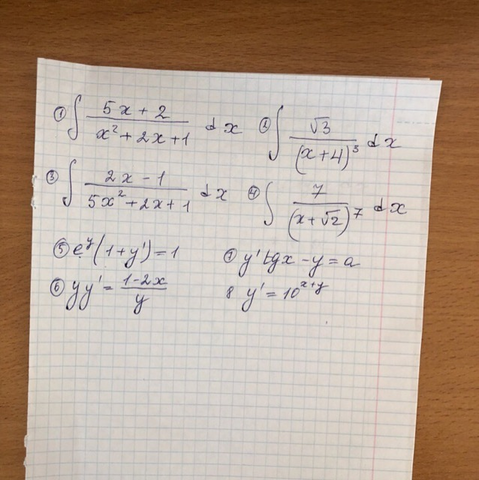 ① ∫ (5x + 2)/(x² + 2x + 1) dx ② ∫ √3/(x+4)³ dx
③ ∫ (2x - 1)/(5x² + 2x + 1) dx ④ ∫ 7/(x+√2)⁷ dx
⑤ eʸ(1+y') = 1 ⑦ y' tgx - y = a
⑥ yy' = (1-2x)/y 8 y' = 10ˣ⁺ʸ